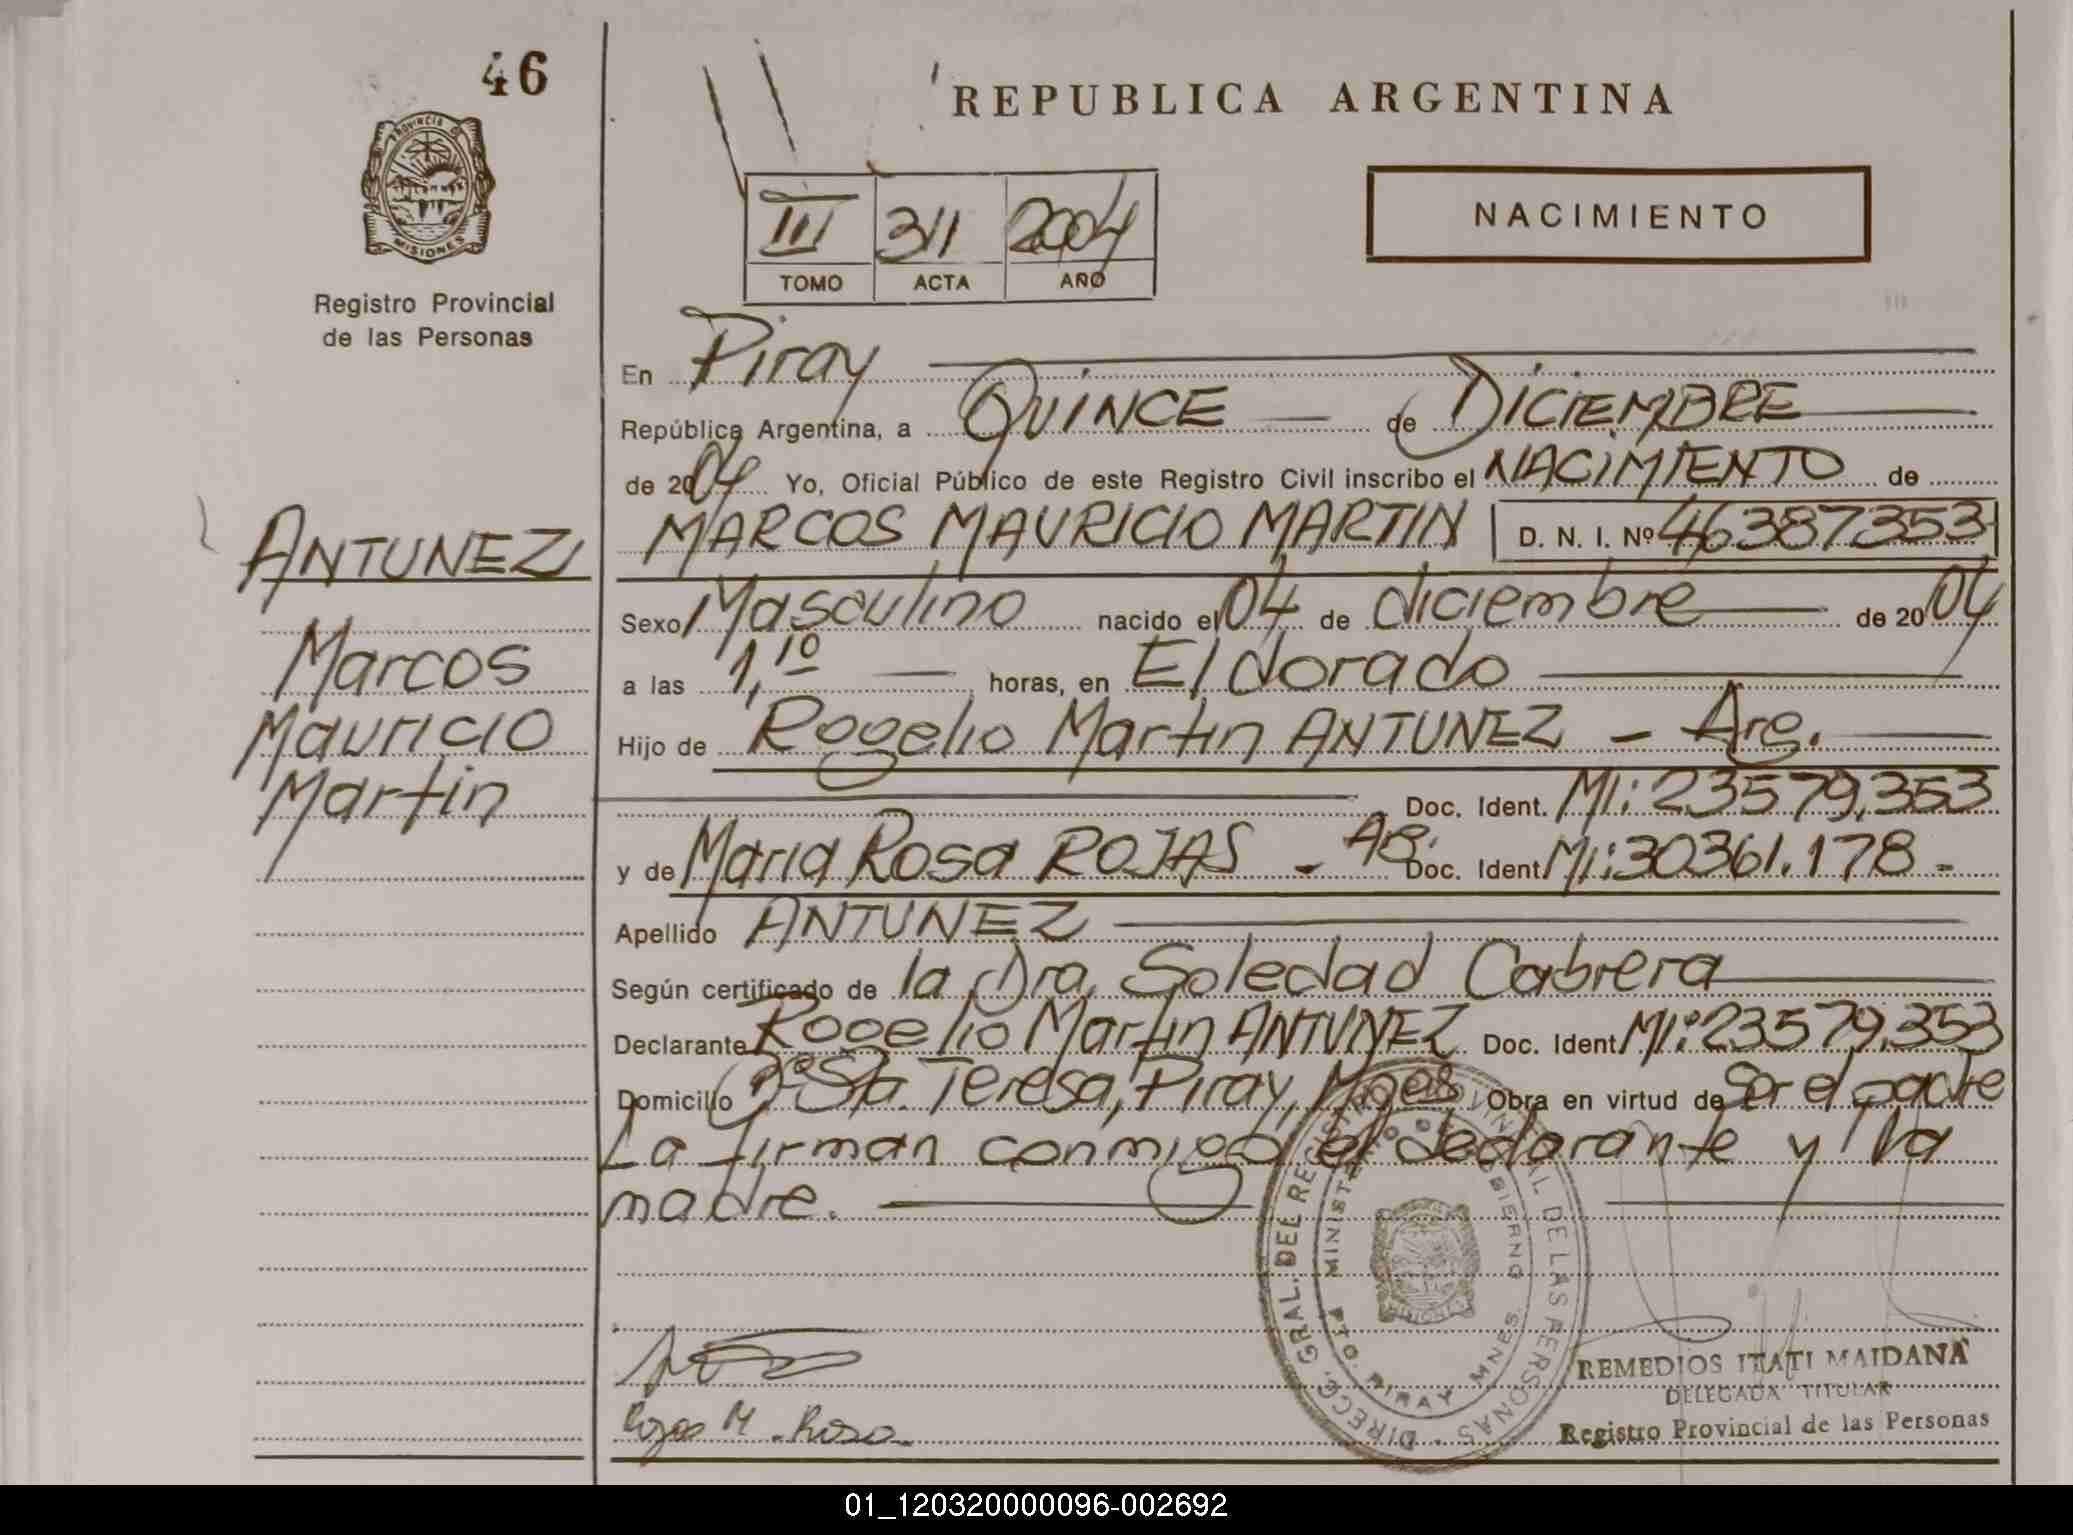 46
PROVINCIA DE
MISIONES
Registro Provincial
de las Personas
ANTUNEZ
Marcos
Mauricio
Martin
REPUBLICA ARGENTINA
NACIMIENTO
III 311 2004
TOMO ACTA AÑO
En Piray
República Argentina, a QUINCE de DICIEMBRE
de 2004 Yo, Oficial Público de este Registro Civil inscribo el NACIMIENTO de
MARCOS MAURICIO MARTIN D. N. I. Nº 46387353
Sexo Masculino nacido el 04 de diciembre de 2004
a las 1,10 horas, en Eldorado
Hijo de Rogelio Martin ANTUNEZ - Arg.
Doc. Ident. MI: 23579.353
y de Maria Rosa ROJAS - Doc. Ident MI: 30361.178 -
Apellido ANTUNEZ
Según certificado de la Dra. Soledad Cabrera
Declarante Rogelio Martin ANTUNEZ Doc. Ident MI: 23579.353
Domicilio Bº Sta. Teresa, Piray, Mnes Obra en virtud de Ser el padre
La firman conmigo el declarante y la
madre.
DIRECC. GRAL. DEL REGISTRO PROVINCIAL DE LAS PERSONAS
MINISTERIO DE GOBIERNO
PTO. PIRAY MNES.
Rojas M. Rosa
REMEDIOS ITATI MAIDANA
DELEGADA TITULAR
Registro Provincial de las Personas
01_120320000096-002692